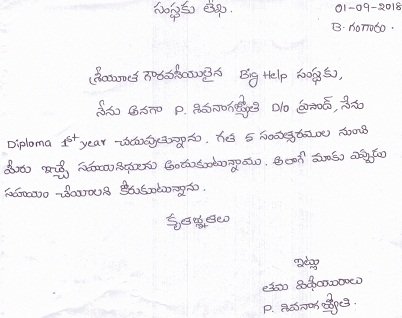 సంస్థకు లేఖ.
01-09-2018
B. గంగారం.
శ్రీయుత గౌరవనీయులైన Big Help సంస్థకు,
నేను అనగా P. శివనాగజ్యోతి D/o ప్రసాద్, నేను
Diploma 1st year చదువుతున్నాను. గత 5 సంవత్సరముల నుంచి
మీరు ఇచ్చే సహాయనిధులను అందుకుంటున్నాము. అలాగే మాకు ఎప్పుడు
సహాయం చేయాలని కోరుకుంటున్నాను.
కృతజ్ఞతలు
ఇట్లు
తమ విధేయురాలు
P. శివనాగజ్యోతి.